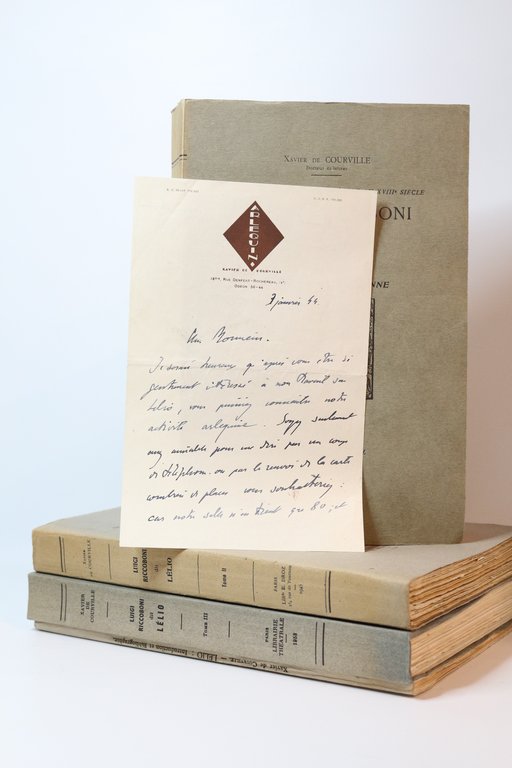 XAVIER DE COURVILLE
XVIIIe SIÈCLE
ONI
NNE
ARLEQUIN
XAVIER DE COURVILLE
18bis, RUE DENFERT-ROCHEREAU, 5e
ODÉON 36-44
janvier 44
Monsieur.
Je serais heureux qu'après vous être si
gentiment intéressé à mon travail sur
Lélio, vous puissiez connaître notre
activité arlequine. Soyez seulement
assez aimable pour me dire par un coup
de téléphone ou par le renvoi de la carte
combien de places vous souhaiteriez:
car notre salle n'en tient que 80, et
XAVIER DE COURVILLE
LUIGI RICCOBONI
dit
LÉLIO
Tome II
PARIS
Lib. E. DROZ
1945
XAVIER
DE
COURVILLE
LUIGI
RICCOBONI
dit
LÉLIO
Tome III
PARIS
LIBRAIRIE
THÉATRALE
1958
Xavier de Courville. — LÉLIO : Introduction et Bibliographie.